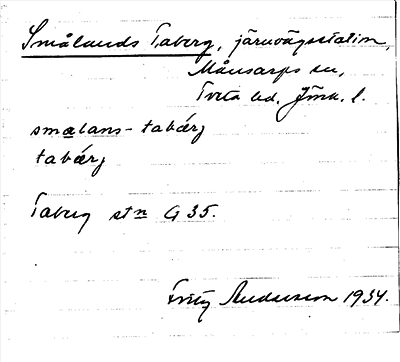 Smålands Taberg, järnvägsstation,
Månsarps sn,
Tveta hd, Jönk. l.
smålans-tabærj
tabærj
Taberg stn G 35.
Fritz Andersson 1934.